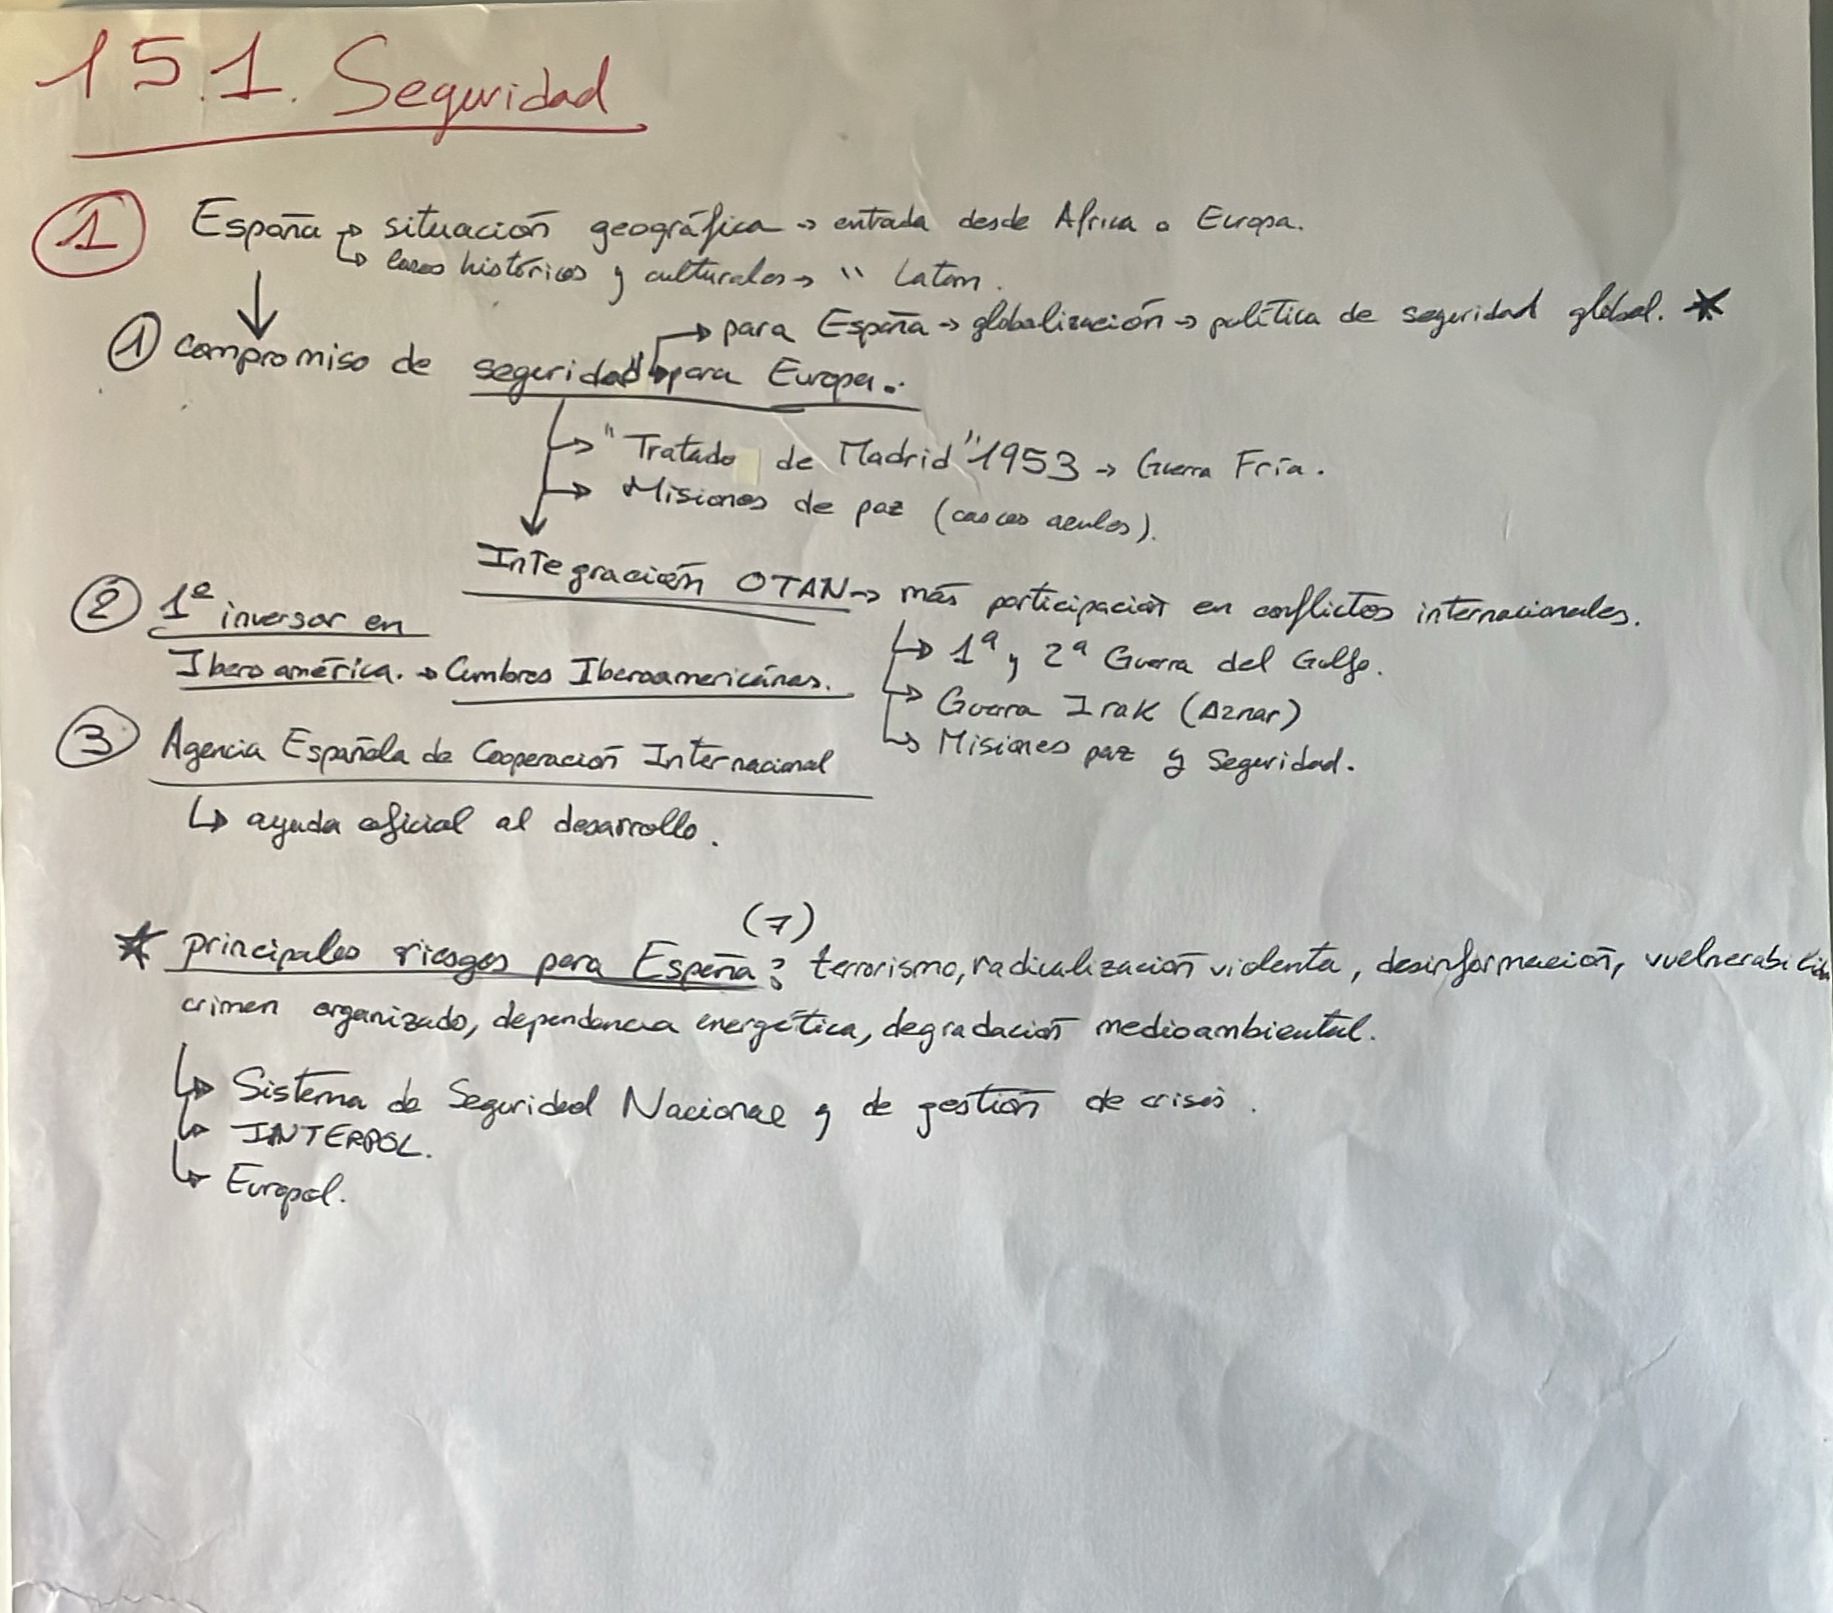 15.1. Seguridad
1 España → situación geográfica → entrada desde Africa a Europa.
↳ lazos históricos y culturales → " Latam.
→ para España → globalización → política de seguridad global. *
① compromiso de seguridad" → para Europa.
↳ "Tratado de Madrid" 1953 → Guerra Fría.
↳ Misiones de paz (cascos azules).
Integración OTAN → más participación en conflictos internacionales.
② 1º inversor en
Iberoamérica. → Cumbres Iberoamericanas.
↳ 1ª y 2ª Guerra del Golfo.
↳ Guerra Irak (Aznar)
↳ Misiones paz y Seguridad.
③ Agencia Española de Cooperación Internacional
↳ ayuda oficial al desarrollo.
(7)
* principales riesgos para España: terrorismo, radicalización violenta, desinformación,
crimen organizado, dependencia energética, degradación medioambiental.
↳ Sistema de Seguridad Nacional y de gestión de crisis.
↳ INTERPOL.
↳ Europol.